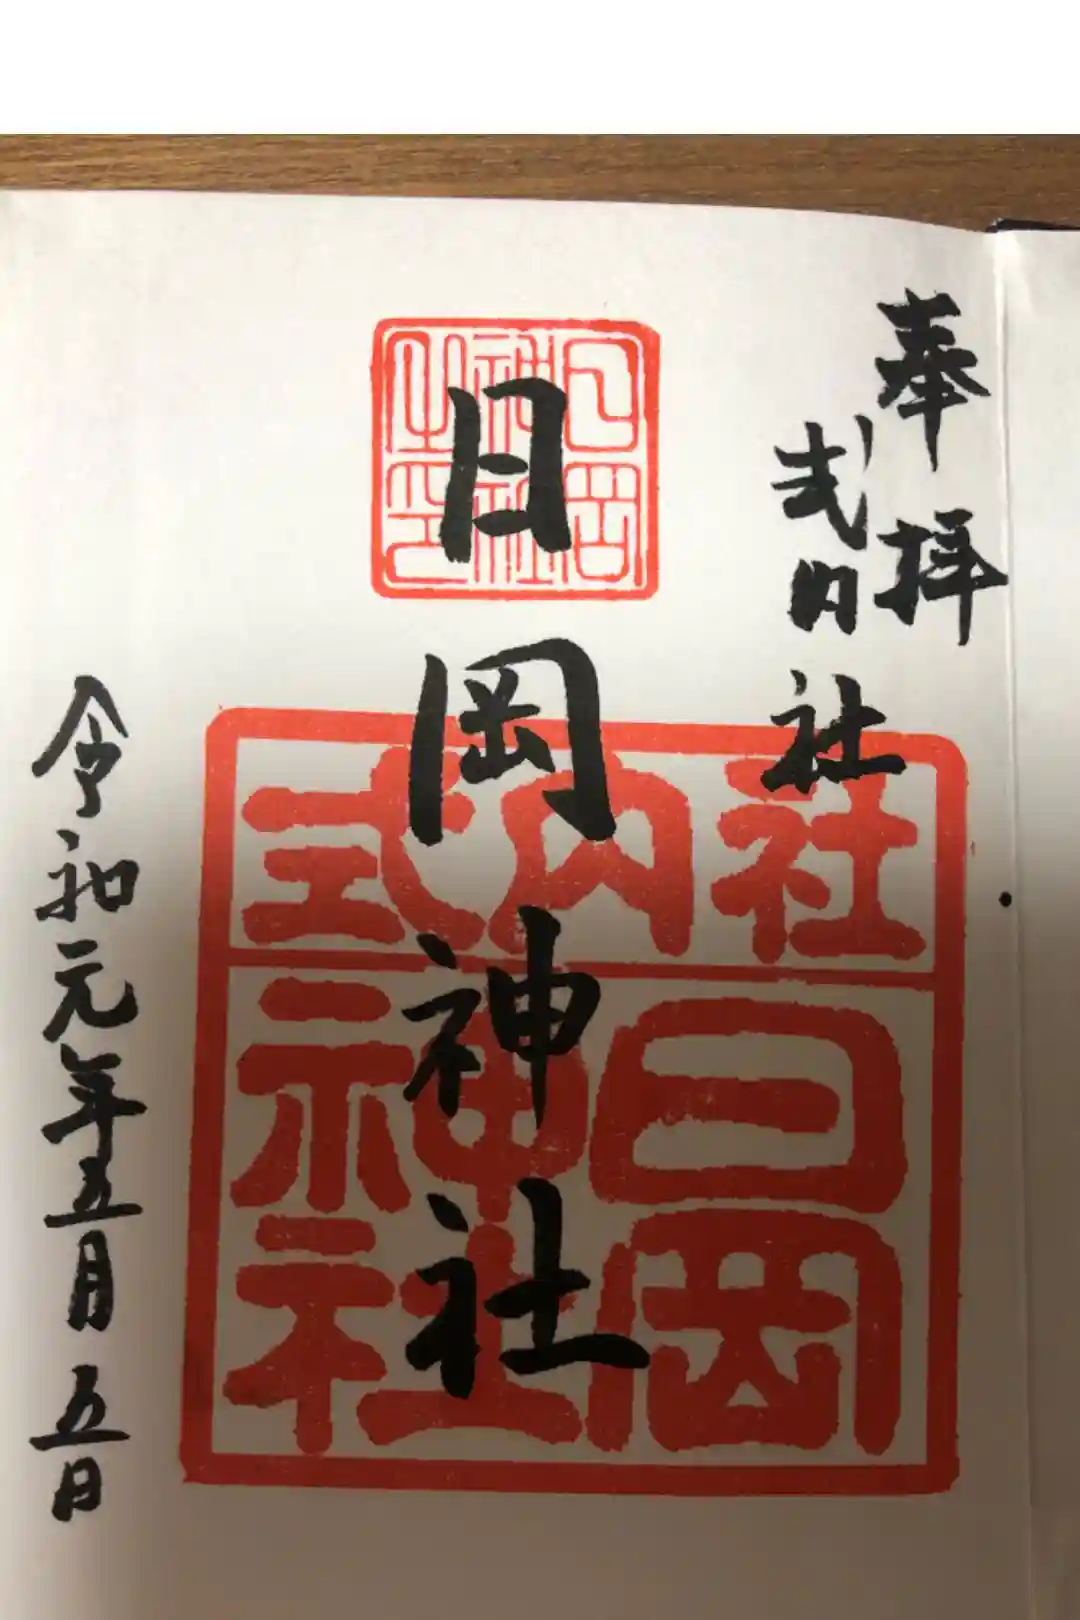 奉拝
式内社
日岡神社
令和元年五月五日
日岡
神社
之印
式内社
日岡
神社